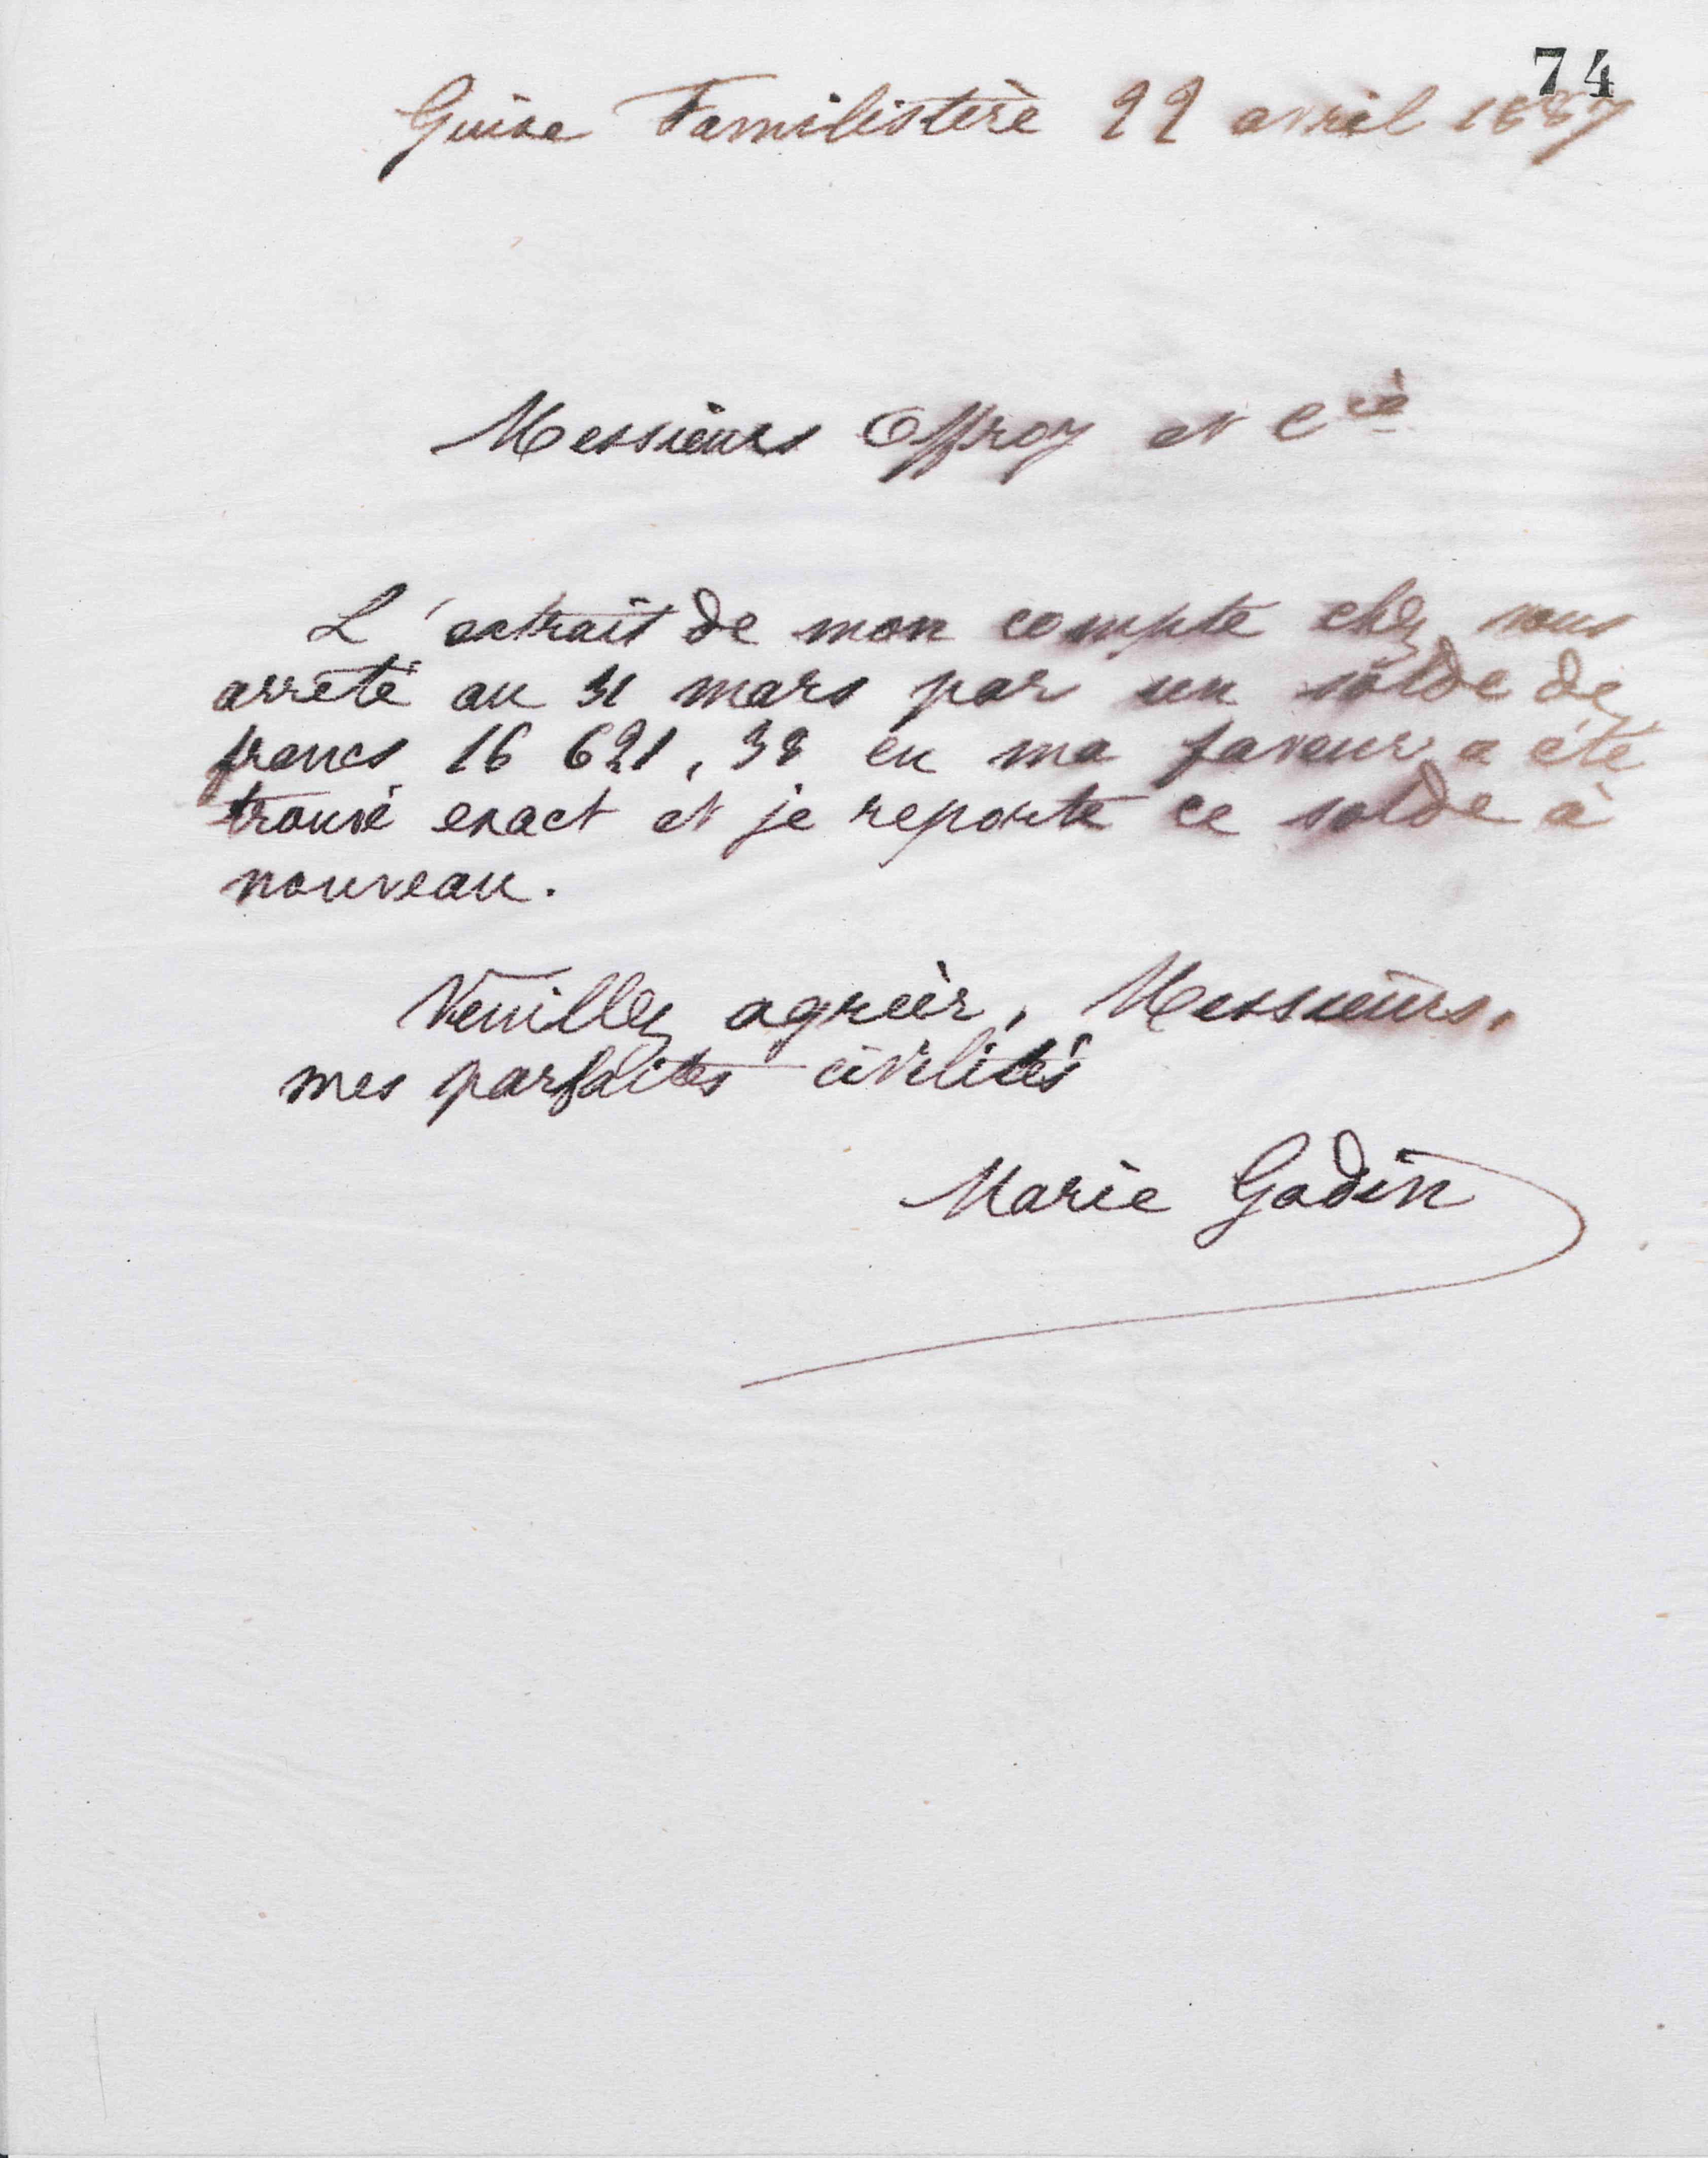 74
Guise Familistère 22 avril 1887
Messieurs Offroy et Cie
L'extrait de mon compte chez vous
arrêté au 31 mars par un solde de
francs 16 621,38 en ma faveur a été
trouvé exact et je reporte ce solde à
nouveau.
Veuillez agréer, Messieurs,
mes parfaites civilités
Marie Godin